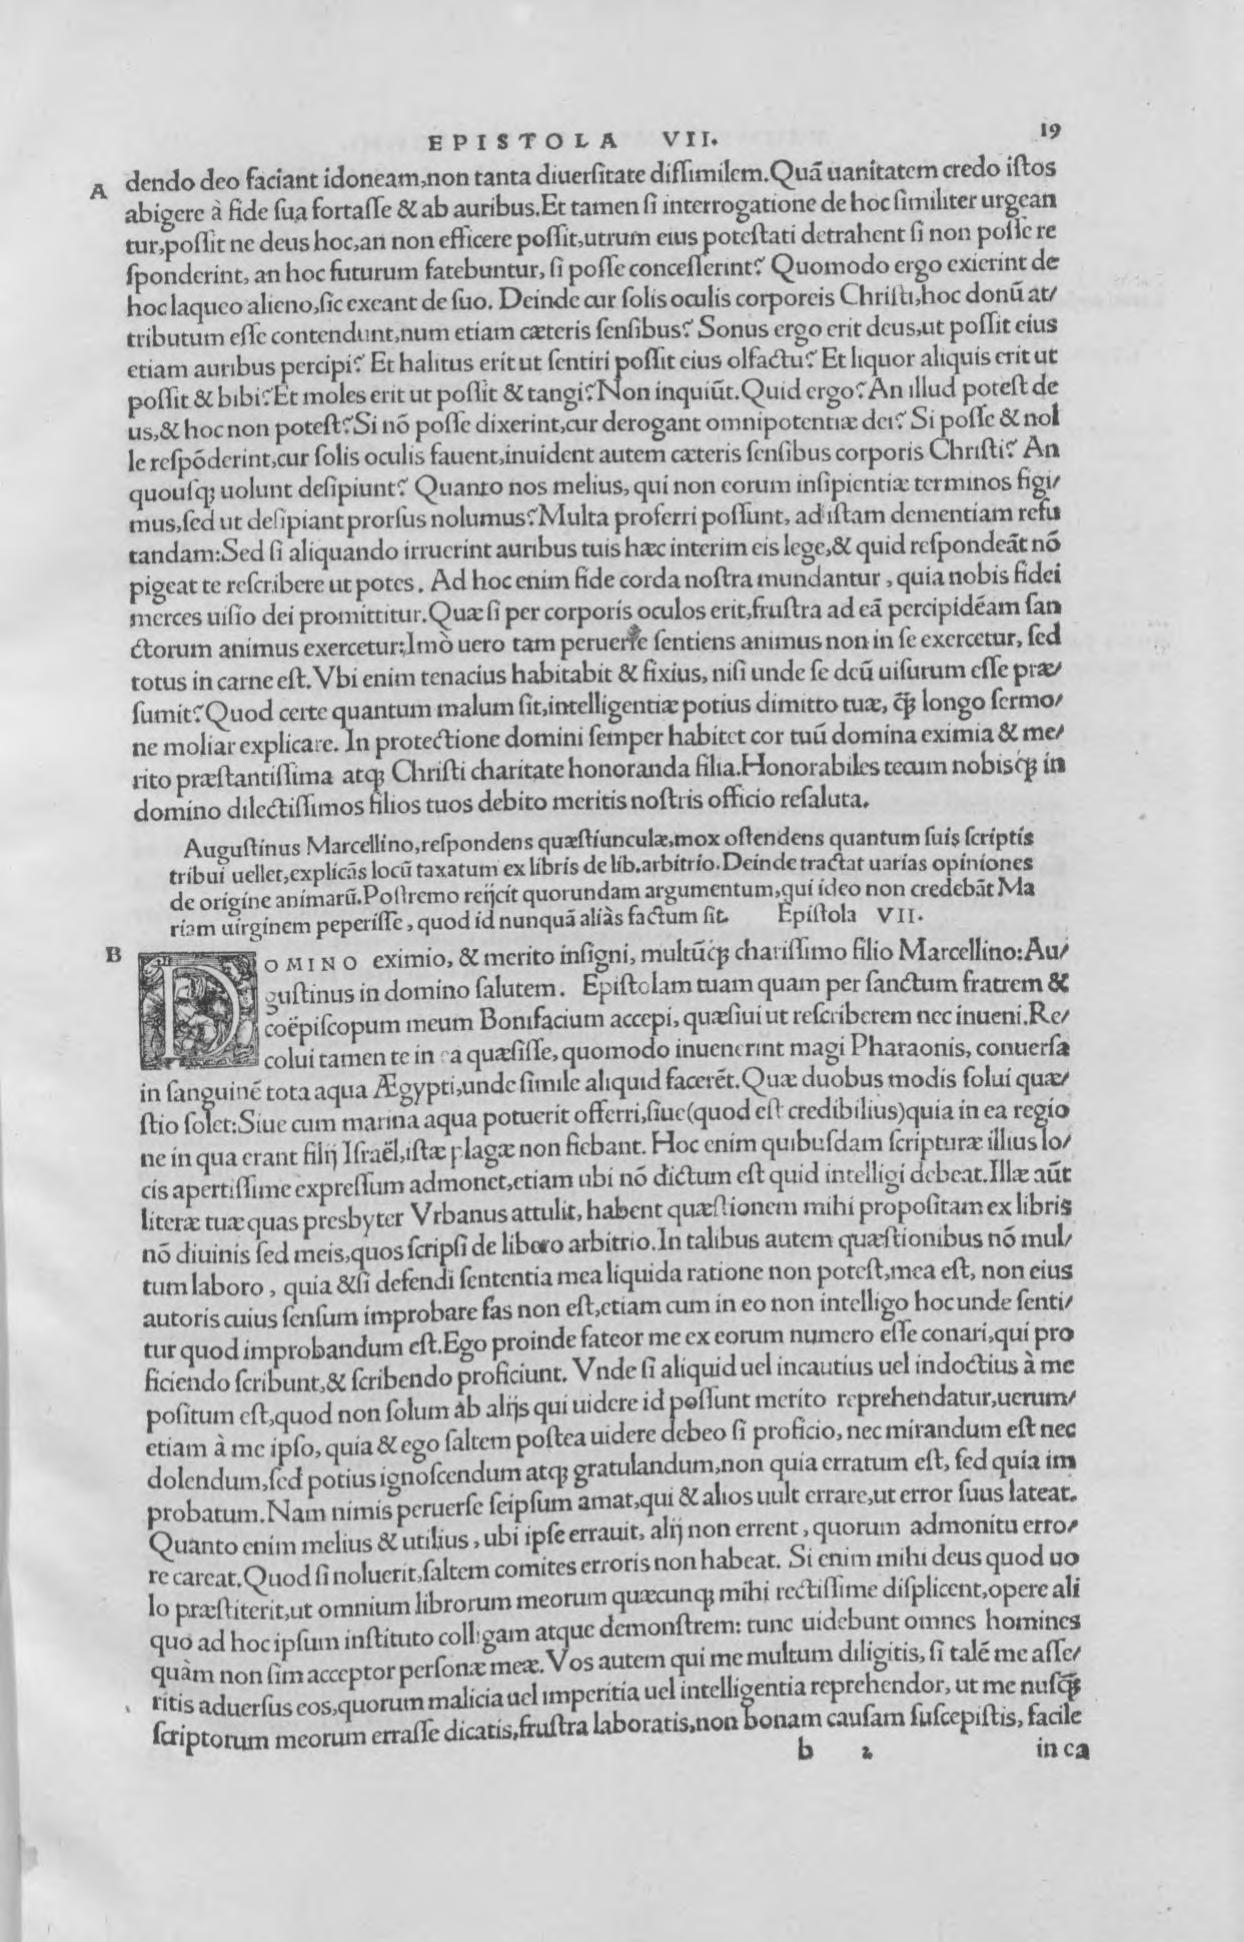 EPISTOLA VII. 19
A dendo deo faciant idoneam,non tanta diuerſitate diſſimilem.Quã uanitatem credo iſtos
abigere à fide ſua fortaſſe & ab auribus.Et tamen ſi interrogatione de hoc ſimiliter urgean
tur,poſſit ne deus hoc,an non efficere poſſit,utrum eius poteſtati detrahent ſi non poſſe re
ſponderint, an hoc futurum fatebuntur, ſi poſſe conceſſerint? Quomodo ergo exierint de
hoc laqueo alieno,ſic exeant de ſuo. Deinde cur ſolis oculis corporeis Chriſti,hoc donũ at/
tributum eſſe contendunt,num etiam cæteris ſenſibus? Sonus ergo erit deus,ut poſſit eius
etiam auribus percipi? Et halitus erit ut ſentiri poſſit eius olfactu? Et liquor aliquis erit ut
poſſit & bibi? Et moles erit ut poſſit & tangi? Non inquiũt.Quid ergo? An illud poteſt de
us,& hoc non poteſt? Si nõ poſſe dixerint,cur derogant omnipotentiæ dei? Si poſſe & nol
le reſpõderint,cur ſolis oculis fauent,inuident autem cæteris ſenſibus corporis Chriſti? An
quouſq; uolunt deſipiunt? Quanto nos melius, qui non eorum inſipientiæ terminos figi/
mus,ſed ut deſipiant prorſus nolumus? Multa proferri poſſunt, ad iſtam dementiam refu
tandam:Sed ſi aliquando irruerint auribus tuis hæc interim eis lege,& quid reſpondeãt nõ
pigeat te reſcribere ut potes. Ad hoc enim fide corda noſtra mundantur , quia nobis fidei
merces uiſio dei promittitur.Quæ ſi per corporis oculos erit,fruſtra ad eã percipidẽam ſan
ctorum animus exercetur:Imò uero tam peruerſe ſentiens animus non in ſe exercetur, ſed
totus in carne eſt. Vbi enim tenacius habitabit & fixius, niſi unde ſe deũ uiſurum eſſe præ/
ſumit? Quod certe quantum malum ſit,intelligentiæ potius dimitto tuæ, q̃; longo ſermo/
ne moliar explicare. In protectione domini ſemper habitet cor tuũ domina eximia & me/
rito præſtantiſſima atq; Chriſti charitate honoranda filia.Honorabiles tecum nobisq́; in
domino dilectiſſimos filios tuos debito meritis noſtris officio reſaluta.
Auguſtinus Marcellino,reſpondens quæſtiunculæ,mox oſtendens quantum ſuis ſcriptis
tribui uellet,explicãs locũ taxatum ex libris de lib.arbitrio.Deinde tractat uarias opiniones
de origine animarũ.Poſtremo reijcit quorundam argumentum,qui ideo non credebãt Ma
riam uirginem peperiſſe, quod id nunquã aliàs factum ſit. Epiſtola VII.
B DOMINO eximio, & merito inſigni, multũq́; chariſſimo filio Marcellino: Au/
guſtinus in domino ſalutem. Epiſtolam tuam quam per ſanctum fratrem &
coëpiſcopum meum Bonifacium accepi, quæſiui ut reſcriberem nec inueni.Re/
colui tamen te in ea quæſiſſe, quomodo inuenerint magi Pharaonis, conuerſa
in ſanguinẽ tota aqua Ægypti,unde ſimile aliquid facerẽt.Quæ duobus modis ſolui quæ/
ſtio ſolet:Siue cum marina aqua potuerit offerri,ſiue(quod eſt credibilius)quia in ea regio
ne in qua erant filij Iſraël,iſtæ plagæ non fiebant. Hoc enim quibuſdam ſcripturæ illius lo/
cis apertiſſime expreſſum admonet,etiam ubi nõ dictum eſt quid intelligi debeat.Illæ aũt
literæ tuæ quas presbyter Vrbanus attulit, habent quæſtionem mihi propoſitam ex libris
nõ diuinis ſed meis,quos ſcripſi de libero arbitrio.In talibus autem quæſtionibus nõ mul/
tum laboro , quia &ſi defendi ſententia mea liquida ratione non poteſt,mea eſt, non eius
autoris cuius ſenſum improbare fas non eſt,etiam cum in eo non intelligo hoc unde ſenti/
tur quod improbandum eſt.Ego proinde fateor me ex eorum numero eſſe conari,qui pro
ficiendo ſcribunt,& ſcribendo proficiunt. Vnde ſi aliquid uel incautius uel indoctius à me
poſitum eſt,quod non ſolum ab alijs qui uidere id poſſunt merito reprehendatur,uerum/
etiam à me ipſo, quia & ego ſaltem poſtea uidere debeo ſi proficio, nec mirandum eſt nec
dolendum,ſed potius ignoſcendum atq; gratulandum,non quia erratum eſt, ſed quia im
probatum. Nam nimis peruerſe ſeipſum amat,qui & alios uult errare,ut error ſuus lateat.
Quanto enim melius & utilius , ubi ipſe errauit, alij non errent , quorum admonitu erro/
re careat.Quod ſi noluerit,ſaltem comites erroris non habeat. Si enim mihi deus quod uo
lo præſtiterit,ut omnium librorum meorum quæcunq; mihi rectiſſime diſplicent,opere ali
quo ad hoc ipſum inſtituto colligam atque demonſtrem: tunc uidebunt omnes homines
quàm non ſim acceptor perſonæ meæ. Vos autem qui me multum diligitis, ſi talẽ me aſſe/
ritis aduerſus eos,quorum malicia uel imperitia uel intelligentia reprehendor, ut me nuſq̃;
ſcriptorum meorum erraſſe dicatis,fruſtra laboratis,non bonam cauſam ſuſcepiſtis, facile
b 2 in ea